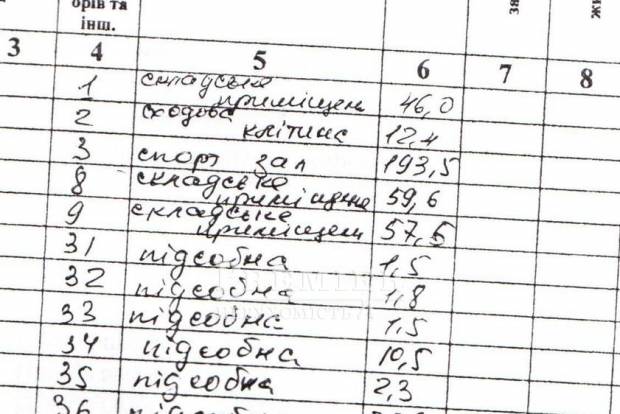 орів та
інш.
3 4 5 6 7 8
1 складське
приміщен 46,0
2 сходова
клітина 12,4
3 спорт зал 193,5
8 складське
приміщене 59,6
9 складське
приміщен 57,5
31 підсобна 1,5
32 підсобна 1,8
33 підсобна 1,5
34 підсобна 10,5
35 підсобна 2,3
36 підсобна